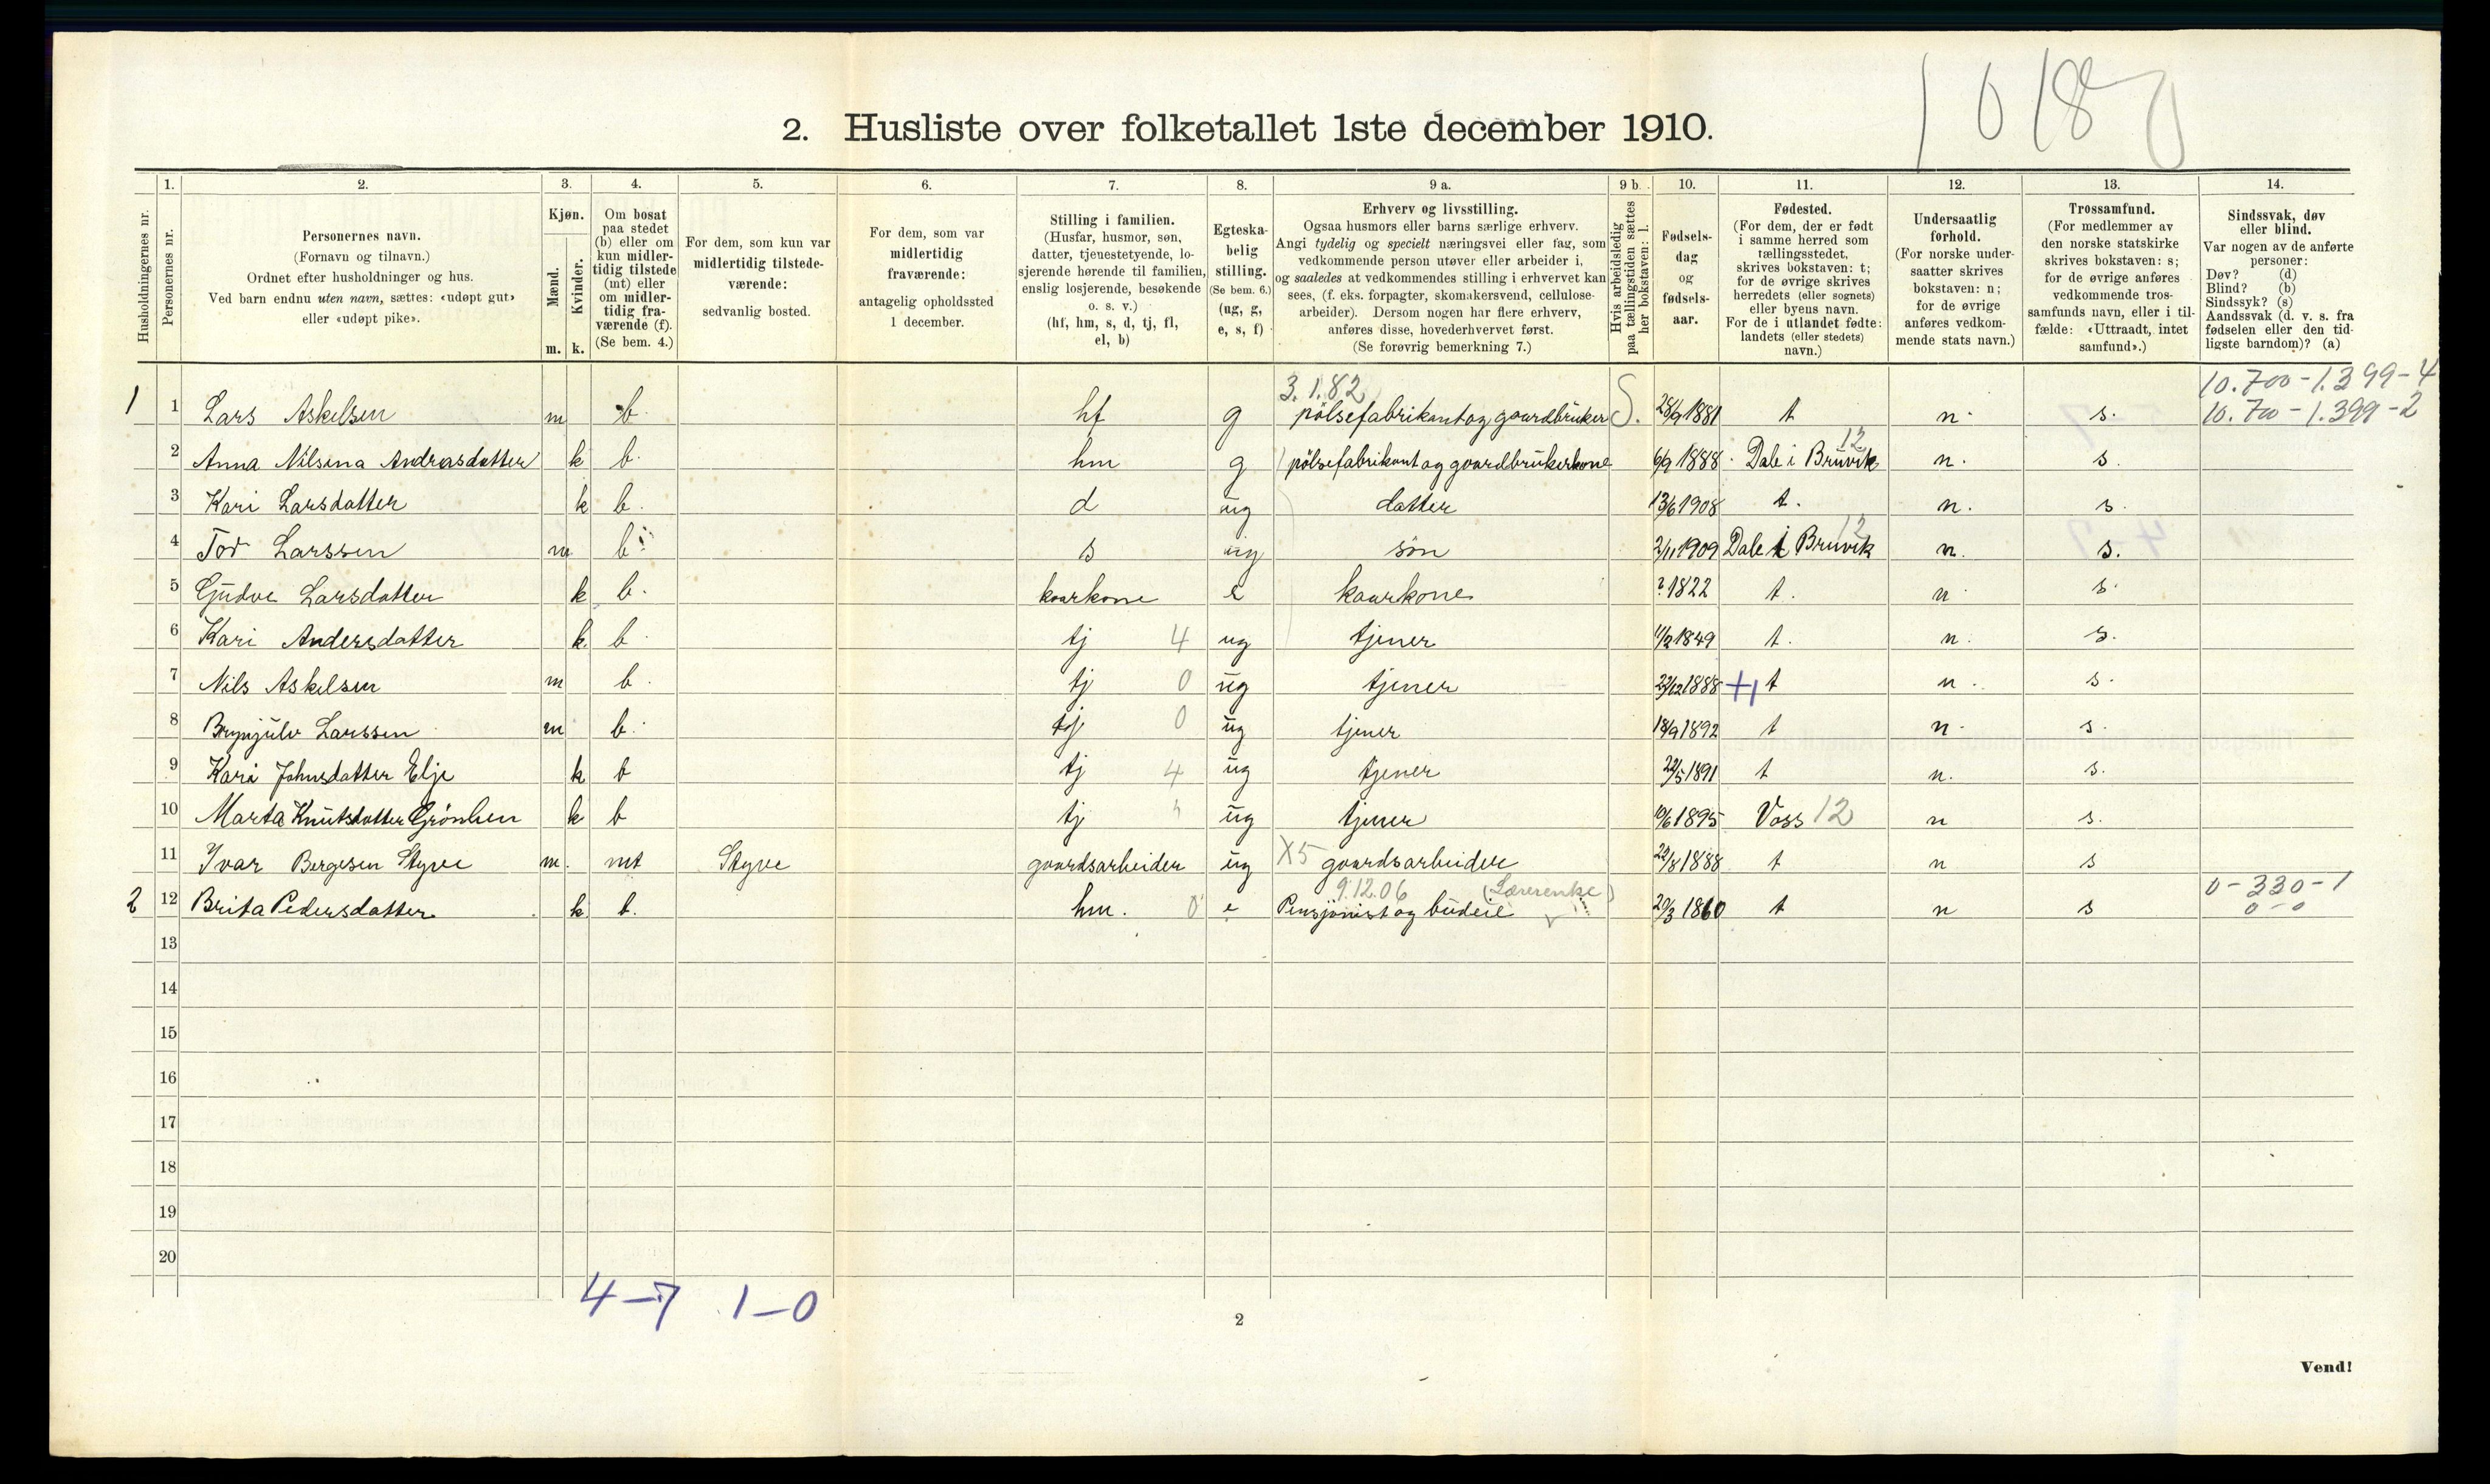 1 0 180
2. Husliste over folketallet 1ste december 1910.
Husholdningernes nr.
1.
Personernes nr.
2.
Personernes navn.
(Fornavn og tilnavn.)
Ordnet efter husholdninger og hus.
Ved barn endnu uten navn, sættes: «udøpt gut»
eller «udøpt pike».
3.
Kjøn.
Mænd.
Kvinder.
m. k.
4.
Om bosat
paa stedet
(b) eller om
kun midler-
tidig tilstede
(mt) eller
om midler-
tidig fra-
værende (f).
(Se bem. 4.)
5.
For dem, som kun var
midlertidig tilstede-
værende:
sedvanlig bosted.
6.
For dem, som var
midlertidig
fraværende:
antagelig opholdssted
1 december.
7.
Stilling i familien.
(Husfar, husmor, søn,
datter, tjenestetyende, lo-
sjerende hørende til familien,
enslig losjerende, besøkende
o. s. v.)
(hf, hm, s, d, tj, fl,
el, b)
8.
Egteska-
belig
stilling.
(Se bem. 6.)
(ug, g,
e, s, f)
9 a.
Erhverv og livsstilling.
Ogsaa husmors eller barns særlige erhverv.
Angi tydelig og specielt næringsvei eller fag, som
vedkommende person utøver eller arbeider i,
og saaledes at vedkommendes stilling i erhvervet kan
sees, (f. eks. forpagter, skomakersvend, cellulose-
arbeider). Dersom nogen har flere erhverv,
anføres disse, hovederhvervet først.
(Se forøvrig bemerkning 7.)
9 b.
Hvis arbeidsledig
paa tællingstiden sættes
her bokstaven: l.
10.
Fødsels-
dag
og
fødsels-
aar.
11.
Fødested.
(For dem, der er født
i samme herred som
tællingsstedet,
skrives bokstaven: t;
for de øvrige skrives
herredets (eller sognets)
eller byens navn.
For de i utlandet fødte:
landets (eller stedets)
navn.)
12.
Undersaatlig
forhold.
(For norske under-
saatter skrives
bokstaven: n;
for de øvrige
anføres vedkom-
mende stats navn.)
13.
Trossamfund.
(For medlemmer av
den norske statskirke
skrives bokstaven: s;
for de øvrige anføres
vedkommende tros-
samfunds navn, eller i til-
fælde: «Uttraadt, intet
samfund».)
14.
Sindssvak, døv
eller blind.
Var nogen av de anførte
personer:
Døv? (d)
Blind? (b)
Sindssyk? (s)
Aandssvak (d. v. s. fra
fødselen eller den tid-
ligste barndom)? (a)
3.1.82 10.700-1.399-4
1 1 Lars Askelsen m b. hf g pölsefabrikant og gaardbruker S. 28/9 1881 t n. s. 10.700-1.399-2
2 Anna Nilsina Andreasdatter k b. hm g pölsefabrikant og gaardbrukerkone 6/9 1888 Dale i Bruvik 12 n. s.
3 Kari Larsdatter k b. d ug datter 13/6 1908 t. n. s.
4 Tor Larssen m b. s ug søn 2/11 1909 Dale i Bruvik 12 n. s.
5 Gjudve Larsdatter k b. kaarkone e kaarkone ? 1822 t. n s.
6 Kari Andersdatter k b. tj 4 ug tjener 1/2 1849 t. n. s.
7 Nils Askelsen m b. tj 0 ug tjener 22/12 1888 t n. s.
8 Brynjulv Larssen m b. tj 0 ug tjener 18/9 1892 t n. s.
9 Kari Johnsdatter Elje k b tj 4 ug tjener 22/5 1891 t n. s.
10 Marta Knutsdatter Grönlien k b tj ug tjener 10/6 1895 Voss 12 n s.
11 Ivar Bergesen Styve m. mt Styve gaardsarbeider ug X5 gaardsarbeider 22/8 1888 t n s
9.12.06 (Lærerenke) 0-330-1
2 12 Brita Pedersdatter k b. hm. 0 e Pensjonist og budeie 20/3 1860 t n s 0-0
13
14
15
16
17
18
19
20
4-7 1-0
2
Vend!